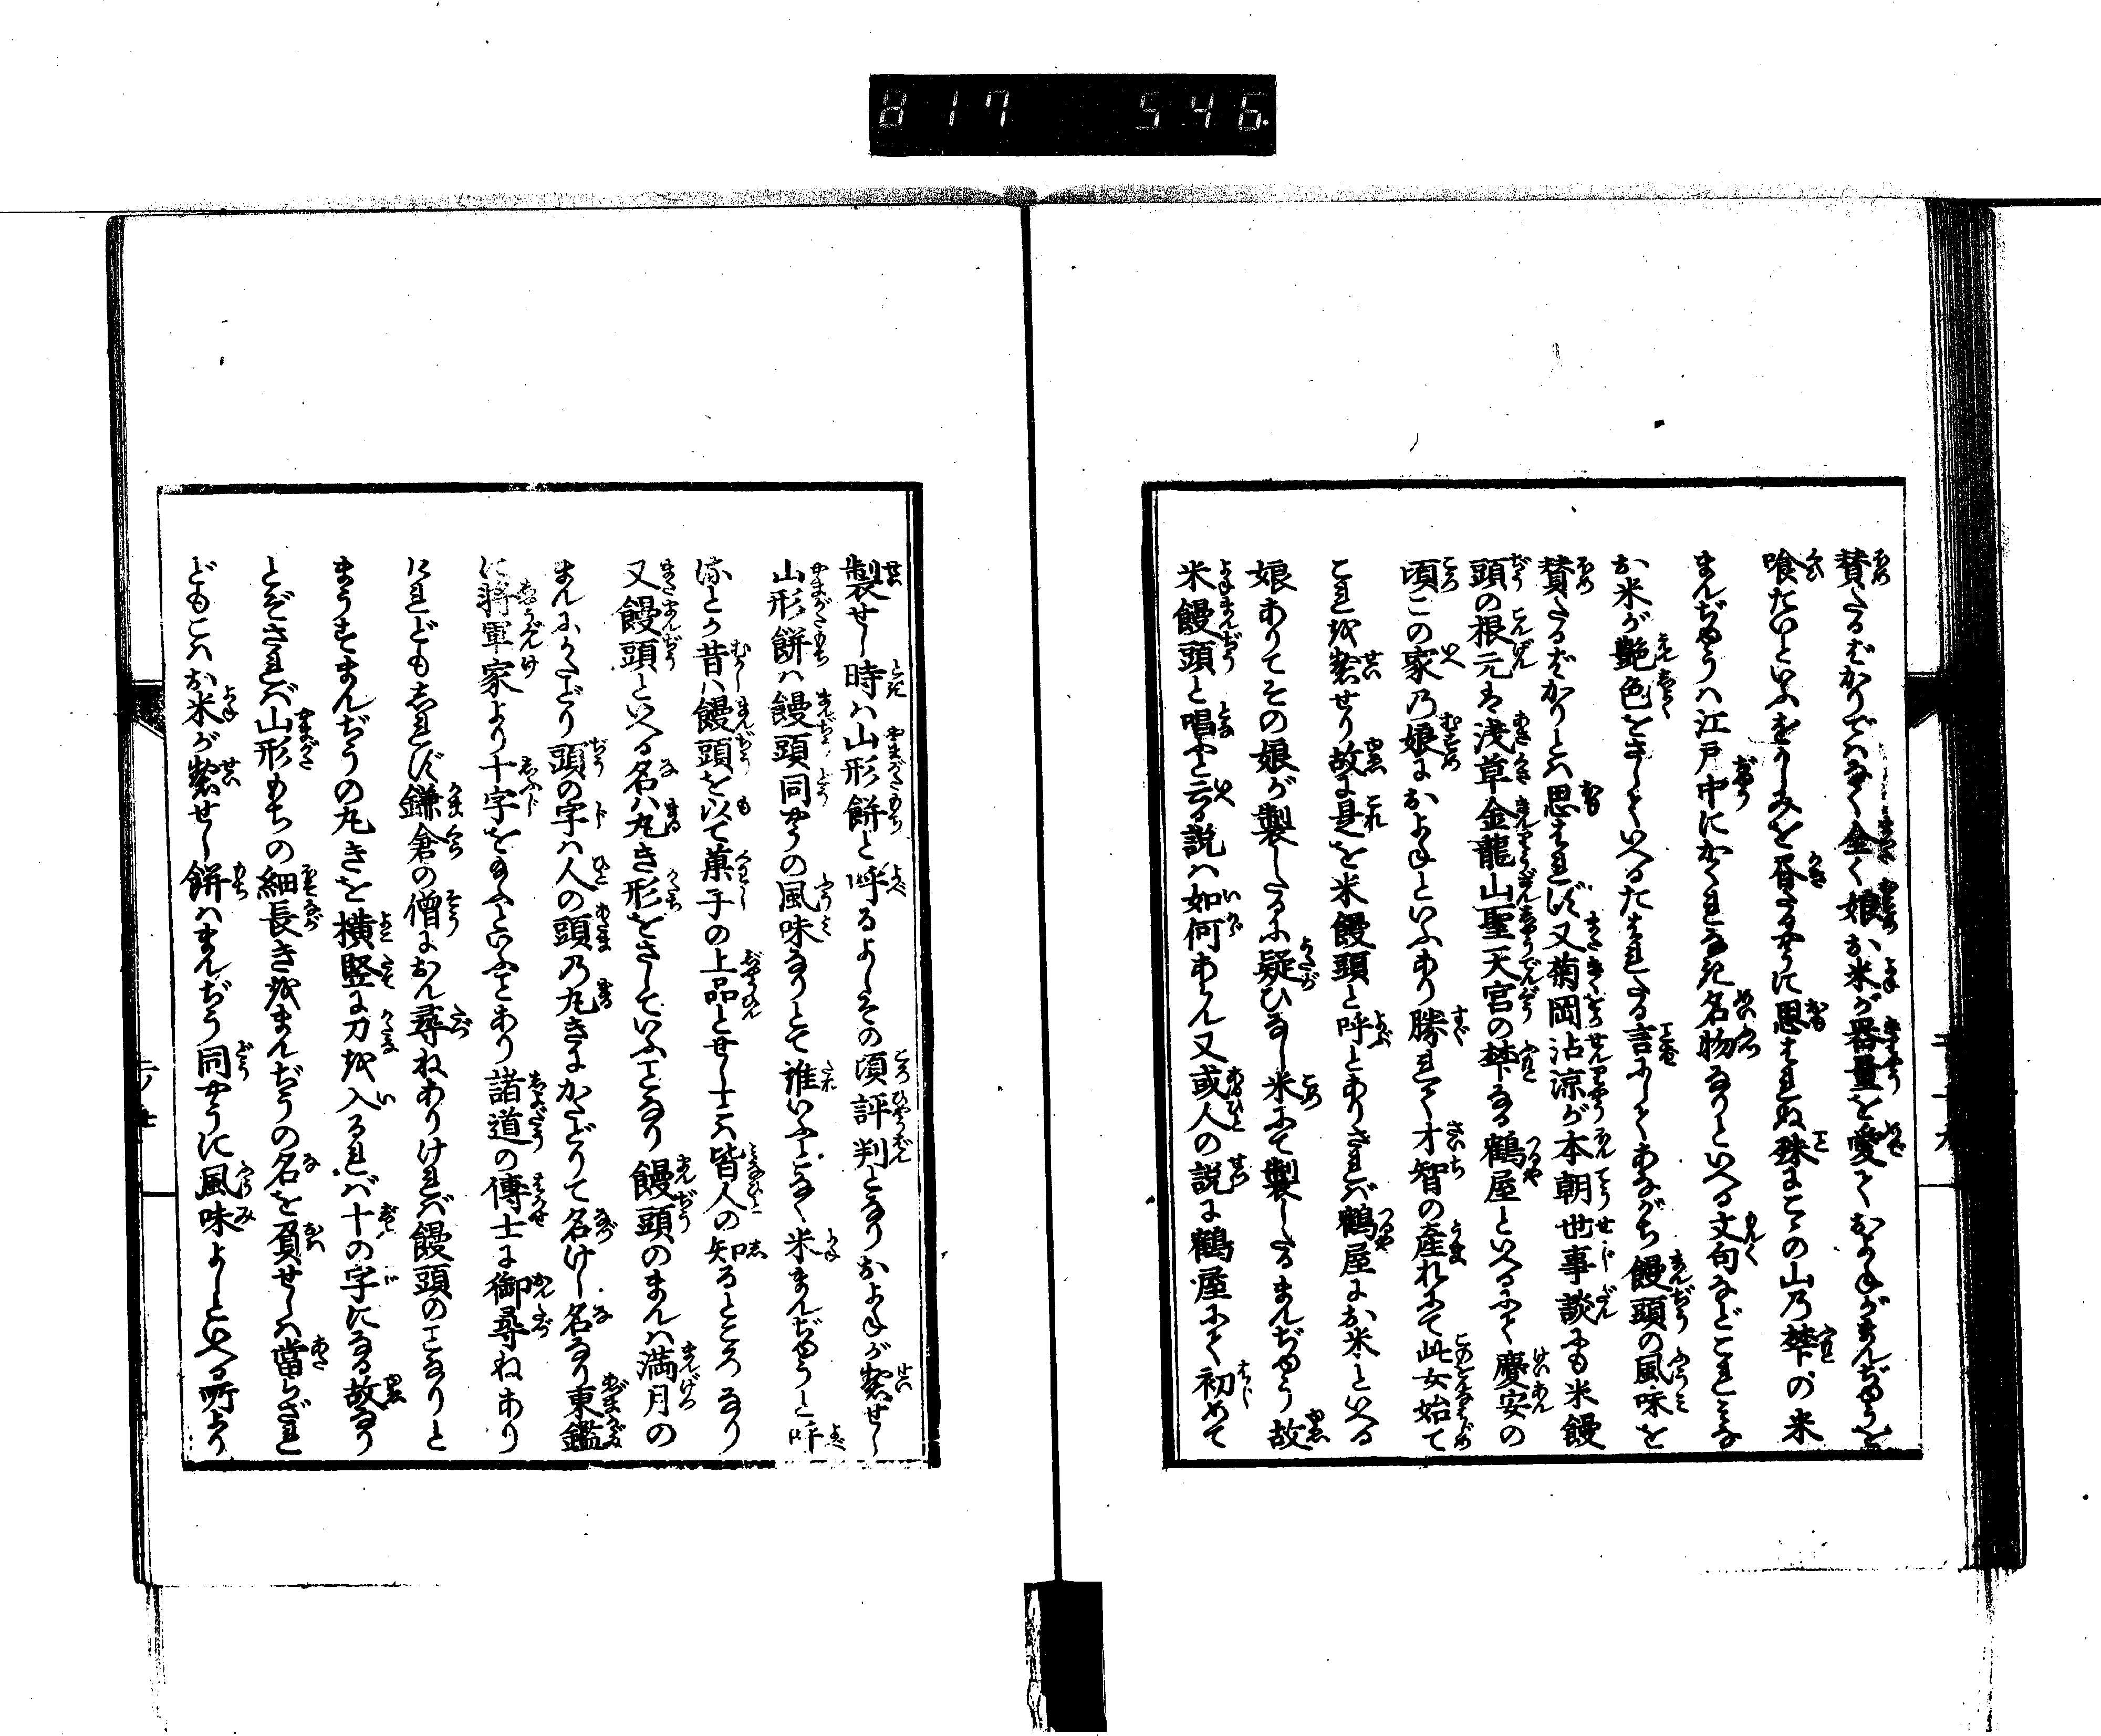 817 546.
賛たるばかりでハなく全く娘お米が器量を愛ておよねがまんぢゆうを
喰たいといふをうしみを呑たるやうに思はれぬ殊にこゝの山乃梺の米
まんぢゆうハ江戸中にかくれなき名物なりといへる文句などこれミな
お米が艶色をさしていへるたはれたる言にしてあながち饅頭の風味を
賛たるばかりとハ思はれず又菊岡沾涼が本朝世事談にも米饅
頭の根元は浅草金龍山聖天宮の梺なる鶴屋といへるにて慶安の
頃この家乃娘およねといふあり勝れて才智の産れにて此女始て
これを製せり故に是を米饅頭と呼とありされバ鶴屋にお米といへる
娘ありてその娘が製したるに疑ひなし米にて製したるまんぢゆう故
米饅頭と唱ふと云る説ハ如何あらん又或人の説に鶴屋にて初めて
製せし時ハ山形餅と呼るよしその頃評判となりおよねが製せし
山形餅ハ饅頭同やうの風味なりとて誰いふとなく米まんぢゆうと呼
なとう昔ハ饅頭を以て菓子の上品とせし古ハ皆人の知るところなり
又饅頭といへる名ハ丸き形をさしていふことなり饅頭のまんハ満月の
まんにかたどり頭の字ハ人の頭乃丸きにかたどりて名けし名なり東鑑
に将軍家より十字をたまふといふことあり諸道の傳士に御尋ねあり
けれどもしれず鎌倉の僧におん尋ねありけれバ饅頭のことなりと
まうすまんぢうの丸きを横竪に刀を入るれバ十の字になる故なり
とぞされバ山形もちの細長きをまんぢうの名を負せしハ當らざれ
どもこハお米が製せし餅ハまんぢう同やうに風味よしといへる所より